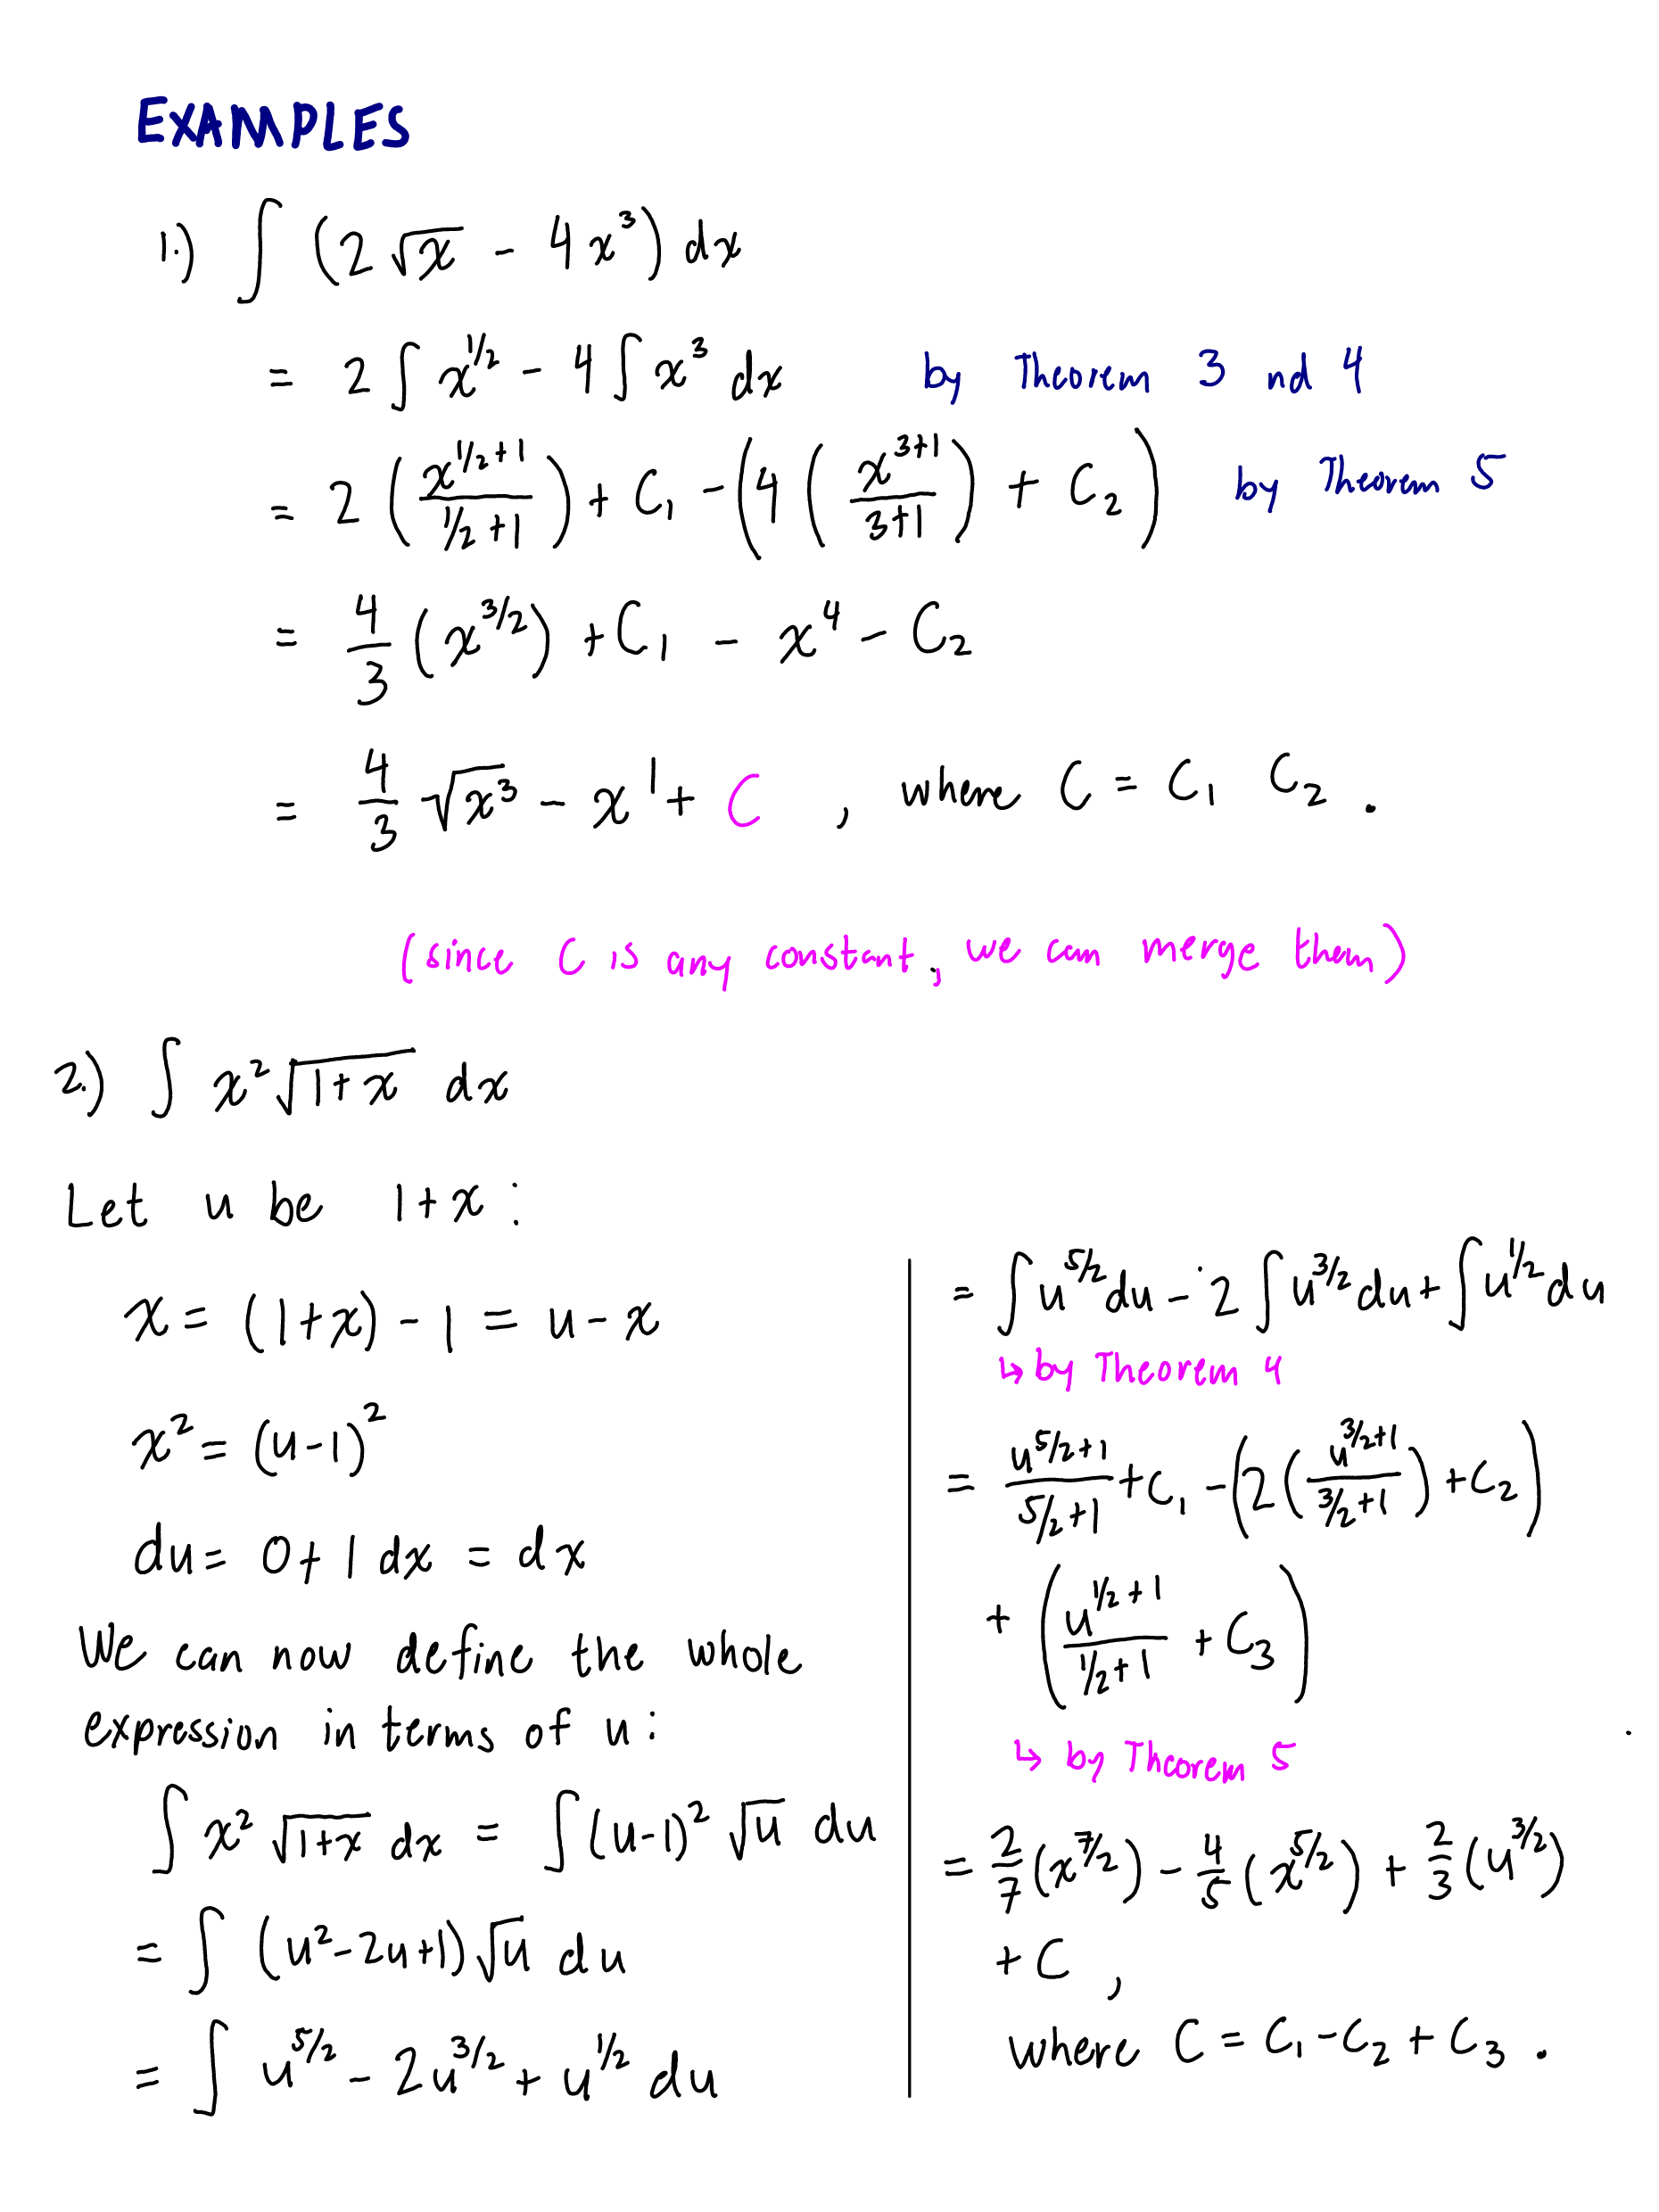 EXAMPLES
1.) ∫ (2√x - 4x³) dx
= 2 ∫ x^(1/2) - 4 ∫ x³ dx by Theorem 3 nd 4
= 2 (x^(1/2+1) / (1/2+1)) + C₁ - (4 (x^(3+1) / (3+1)) + C₂) by Theorem 5
= 4/3 (x^(3/2)) + C₁ - x⁴ - C₂
= 4/3 √x³ - x^1 + C , where C = C₁ C₂ .
(since C is any constant, we can merge them)
2.) ∫ x² √(1+x) dx
Let u be 1+x :
x = (1+x) - 1 = u - x
x² = (u-1)²
du = 0 + 1 dx = dx
We can now define the whole
expression in terms of u :
∫ x² √(1+x) dx = ∫ (u-1)² √u du
= ∫ (u²-2u+1) √u du
= ∫ u^(5/2) - 2u^(3/2) + u^(1/2) du
= ∫ u^(5/2) du - 2 ∫ u^(3/2) du + ∫ u^(1/2) du
↳ by Theorem 4
= u^(5/2+1) / (5/2+1) + C₁ - (2 (u^(3/2+1) / (3/2+1)) + C₂)
+ (u^(1/2+1) / (1/2+1) + C₃)
↳ by Theorem 5
= 2/7 (x^(7/2)) - 4/5 (x^(5/2)) + 2/3 (u^(3/2))
+ C ,
where C = C₁ - C₂ + C₃ .